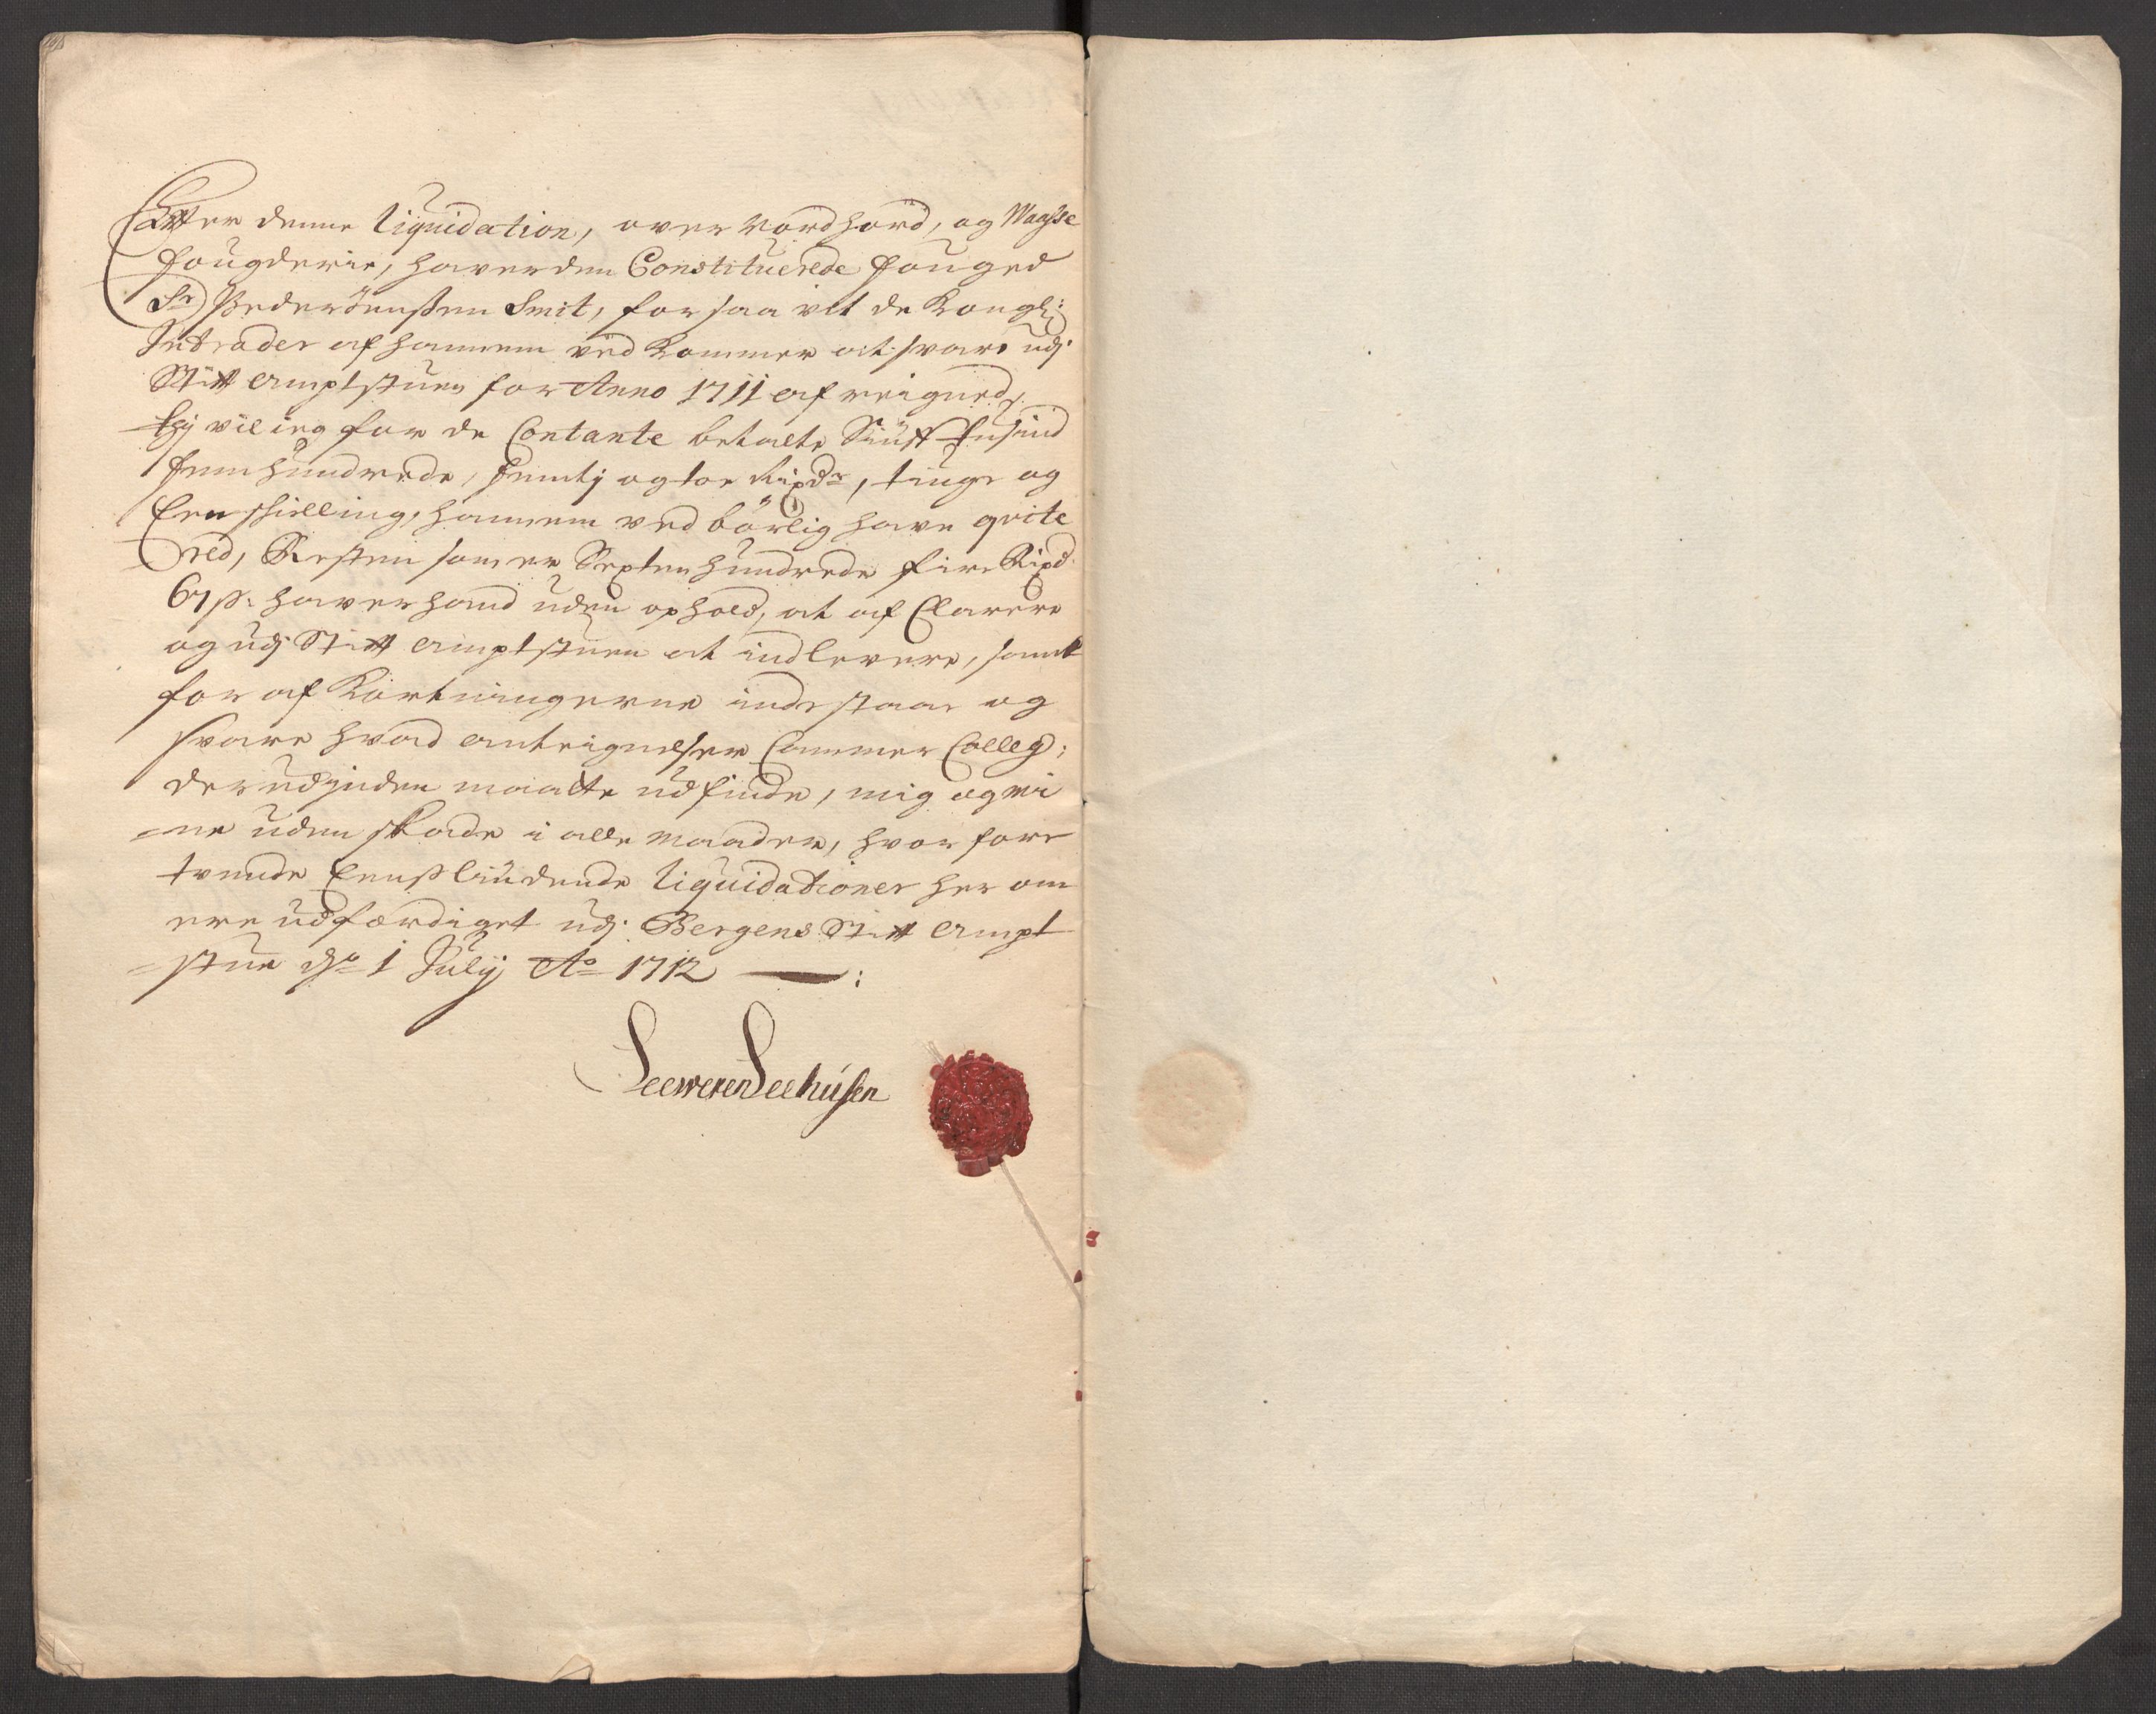 Effter denne Liquidation, over Nordhord, og Waasse
fougderie, haver den Constituerede fouged
Sr Peder Jenssen Smit, for saa vit de Kongl:
Intrader af hannem ved kommer at svare udj
Stift Amptstuen for Anno 1711 af reigned,
thj vil ieg for de Contante betalte Siuff tusind
fem hundrede, femtj og toe Rixdr, tiuge og
Een schilling, hannem ved børlig have qvite
red, Resten som er Sexten hundrede fire Rixd
67 ß: haver hand uden ophold, at af Clarere
og udj Stift Amptstuen at indlevere, samt
for af Kortningerne inde staae og
svare hvad Anteignelser Cammer Colleg:
der udjnden maatte udfinde, mig og mi
=ne uden skade i alle maader, hvor fore
tvende Eenslÿdende Liquidationer her om
ere udferdiget udj Bergens Stift Ampt
=stue d 1 Julij Ao 1712 — :
Seweren Seehusen